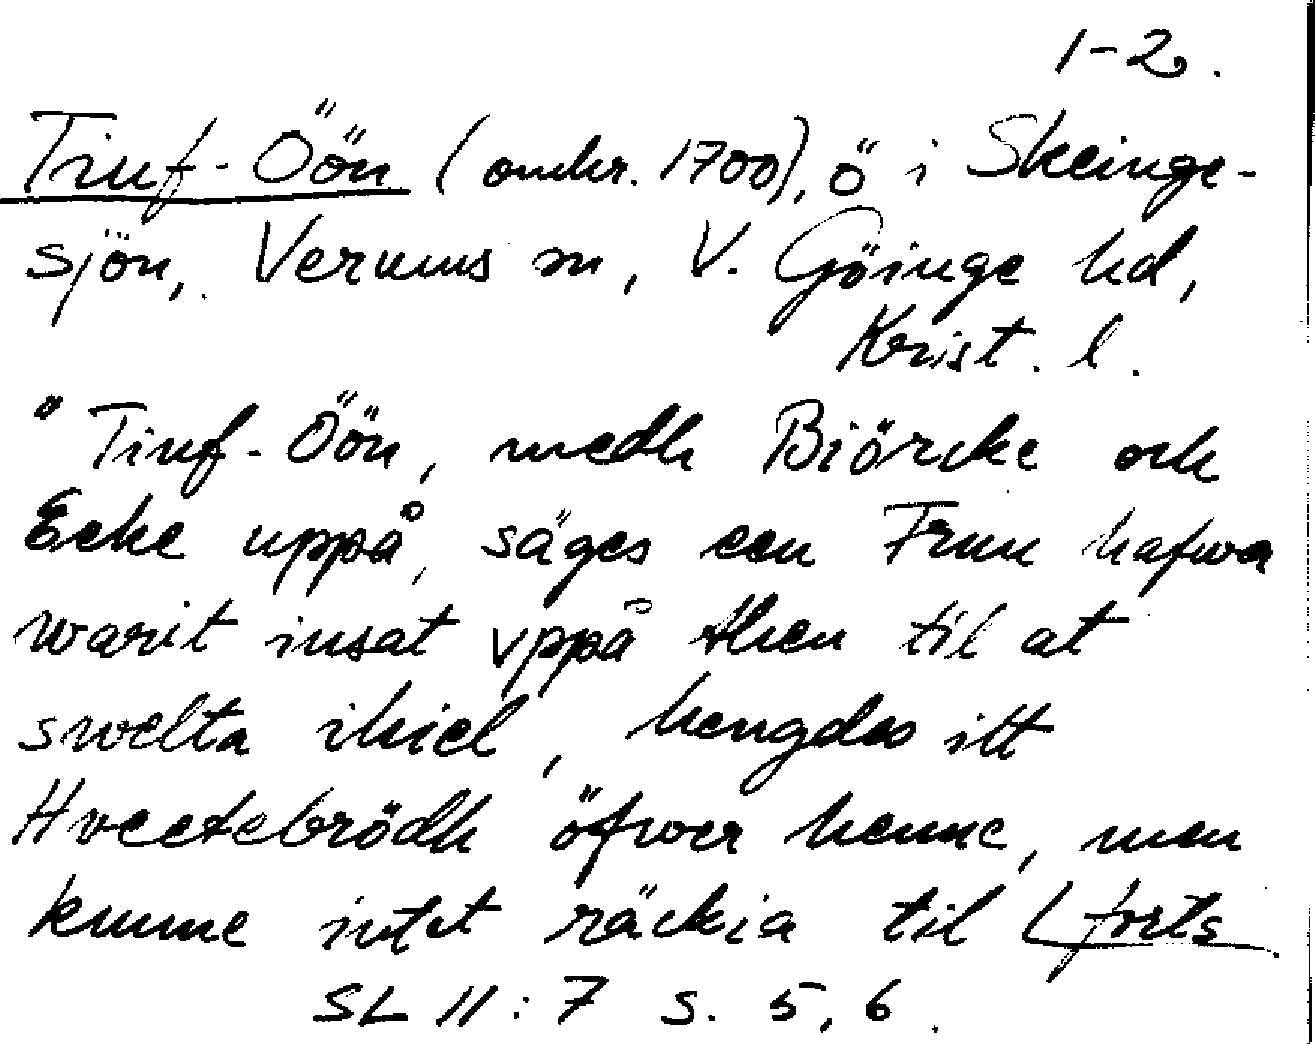 1-2.
Tiuf-Öön (omkr. 1700), ö i Skeinge-
sjön, Verums sn, V. Göinge hd,
Krist. l.
"Tiuf-Öön, medh Biörcke och
Ecke uppå, säges een Fruu hafwa
warit insat vppå then til at
swelta ihiel, hengdes itt
Hveetebrödh öfwer henne, men
kunne intet räckia til (forts
SL 11:7 s. 5, 6.